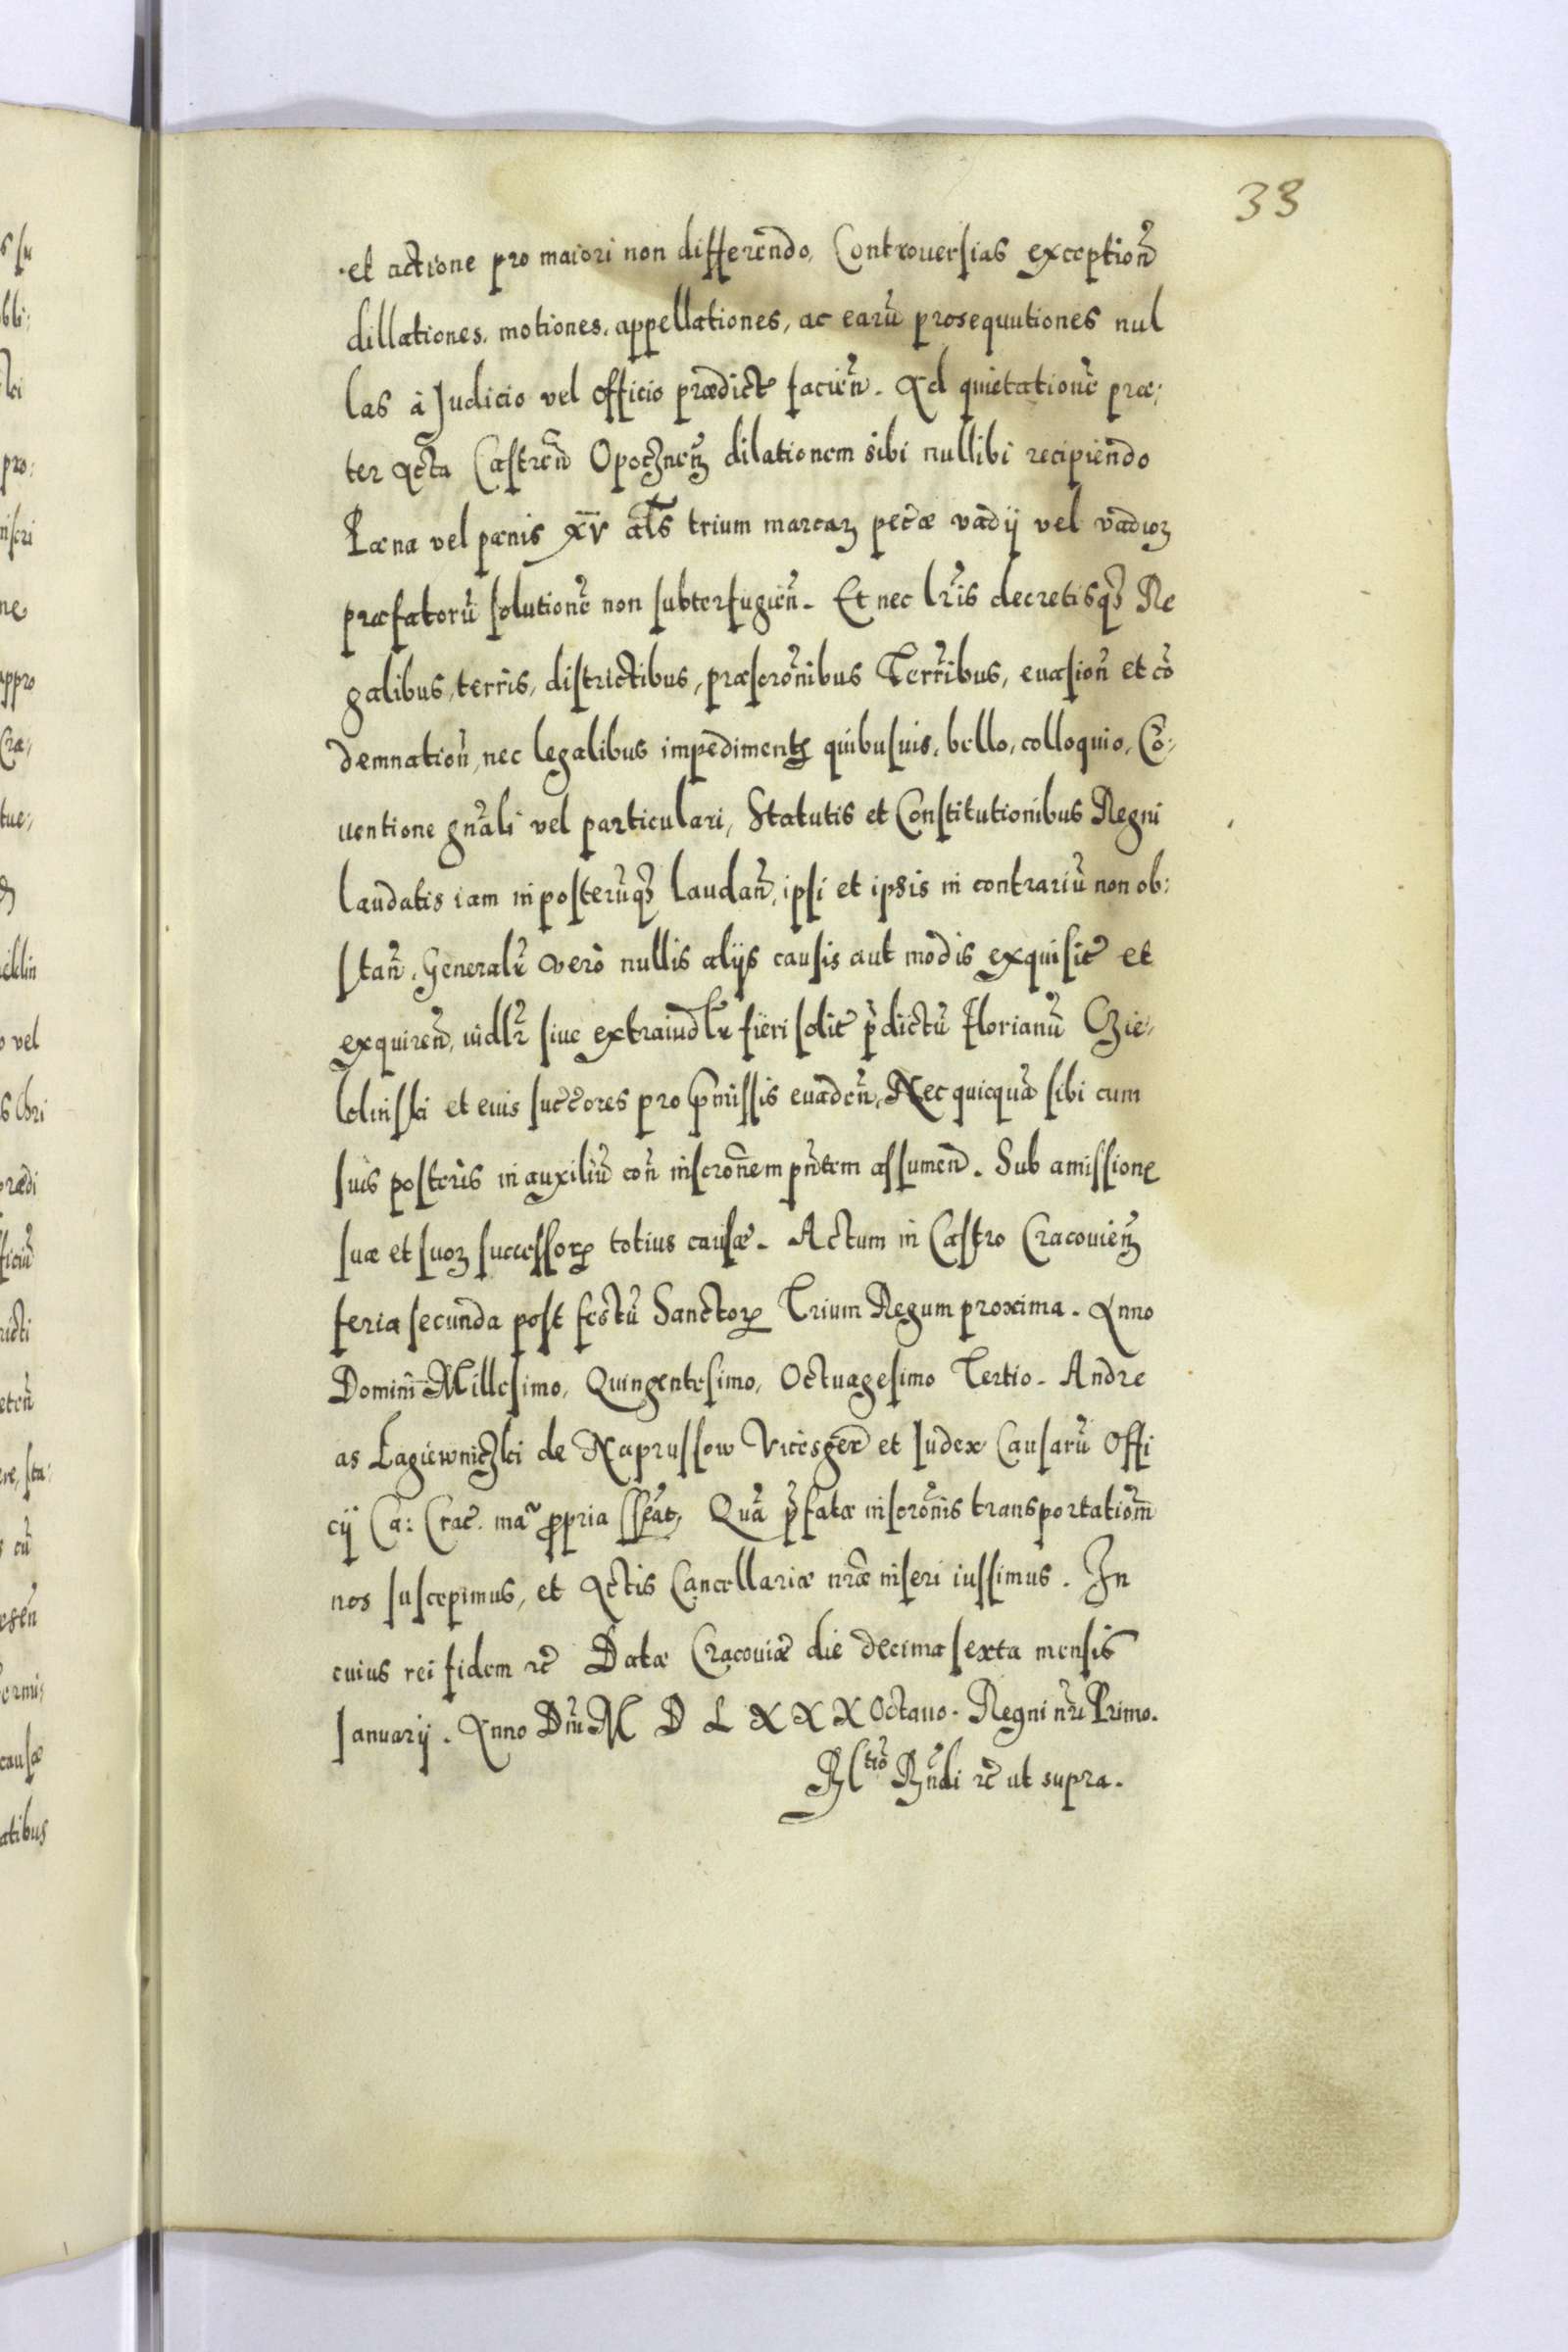 33
et actione pro maiori non differendo, Controuersias exceptioñ
dillationes, motiones, appellationes, ac earũ prosequutiones nul
las à Judicio vel Officio prædict̃ facieñ. Ad quietationẽ præ:
ter Acta Castreñ Opoczneñ dilationem sibi nullibi recipiendo
Pæna vel pænis XV al̃s trium marcaꝝ pec̃æ vadij vel vadioꝝ
præfatorũ solutionẽ non subterfugieñ. Et nec lr̃is decretisqꝫ Re
galibus, terris, districtibus, præscrõnibus Terr̃ibus, euasioñ et cõ
demnatioñ, nec legalibus impedimentꝭ quibusuis, bello, colloquio, Cõ:
uentione gñali vel particulari, Statutis et Constitutionibus Regni
laudatis iam in posterũqꝫ laudañ, ipsi et ipsis in contrariũ non ob:
stañ. Generalr̃ vero nullis alijs causis aut modis exquisit̃ et
exquireñ, iudlr̃ siue extraiudlr̃ fieri solit̃ p̃dictũ Florianũ Gzie,
lolinski et eius succ̃ores pro p̃missis euadeñ, Nec quicquã sibi cum
suis posteris in auxiliũ coñ inscrõnem pñtem assumeñ. Sub amissione
suæ et suoꝝ successoꝝ totius causæ. Actum in Castro Cracouieñ
feria secunda post festũ Sanctoꝝ Trium Regum proxima. Anno
Domini Millesimo, Quingentesimo, Octuagesimo Tertio. Andre
as Łagiewniczki de Naprussow Vicesgeꝝ et Iudex Causarũ Offi
cij Ca: Crac̃. mañ ꝓpria Quã p̃fatæ inscrõnis transportatioñ
nos suscepimus, et Actis Cancellariæ nr̃æ inseri iussimus. In
cuius rei fidem ꝛc̃ Datæ Cracouiæ die decima sexta mensis
Ianuarij. Anno Dñi M D L X X X Octauo. Regni nr̃i Primo.
R̃ñdi ꝛc̃ ut supra.